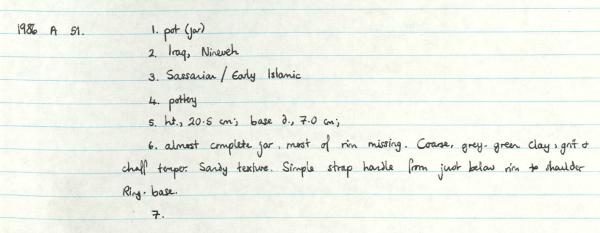 1986 A 51. 1. pot (jar)
2. Iraq, Nineveh
3. Sassanian / Early Islamic
4. pottery
5. ht., 20.5 cm; base d., 7.0 cm;
6. almost complete jar, most of rim missing. Coarse, grey-green clay, grit &
chaff temper. Sandy texture. Simple strap handle from just below rim to shoulder
Ring-base.
7.